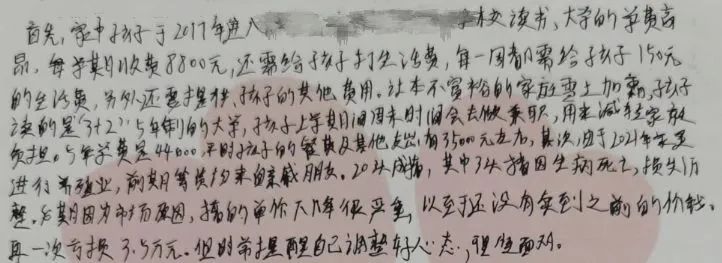 首先,家中孩子于2017年进入 学校读书,大学的学费高
昂,每学期收费8800元,还需给孩子打生活费,每一周都需给孩子150元
的生活费,另外还要提供孩子的其他费用。让本不富裕的家庭雪上加霜,孩子
读的是"3+2"5年制的大学,孩子上学期间周末时间会去做兼职,用来减轻家庭
负担。5年学费是44000 平时孩子的餐费及其他支出,有35000元左右,其次,由于2021年家里
进行养殖业,前期筹资均来自亲戚朋友。20头成猪,其中3头猪因生病死亡,损失
惨。后期因为市场原因,猪的单价下降很严重,以至于还没有卖到之前的价钱。
再一次亏损3.5万元。但时常提醒自己调整好心态,坦然面对。